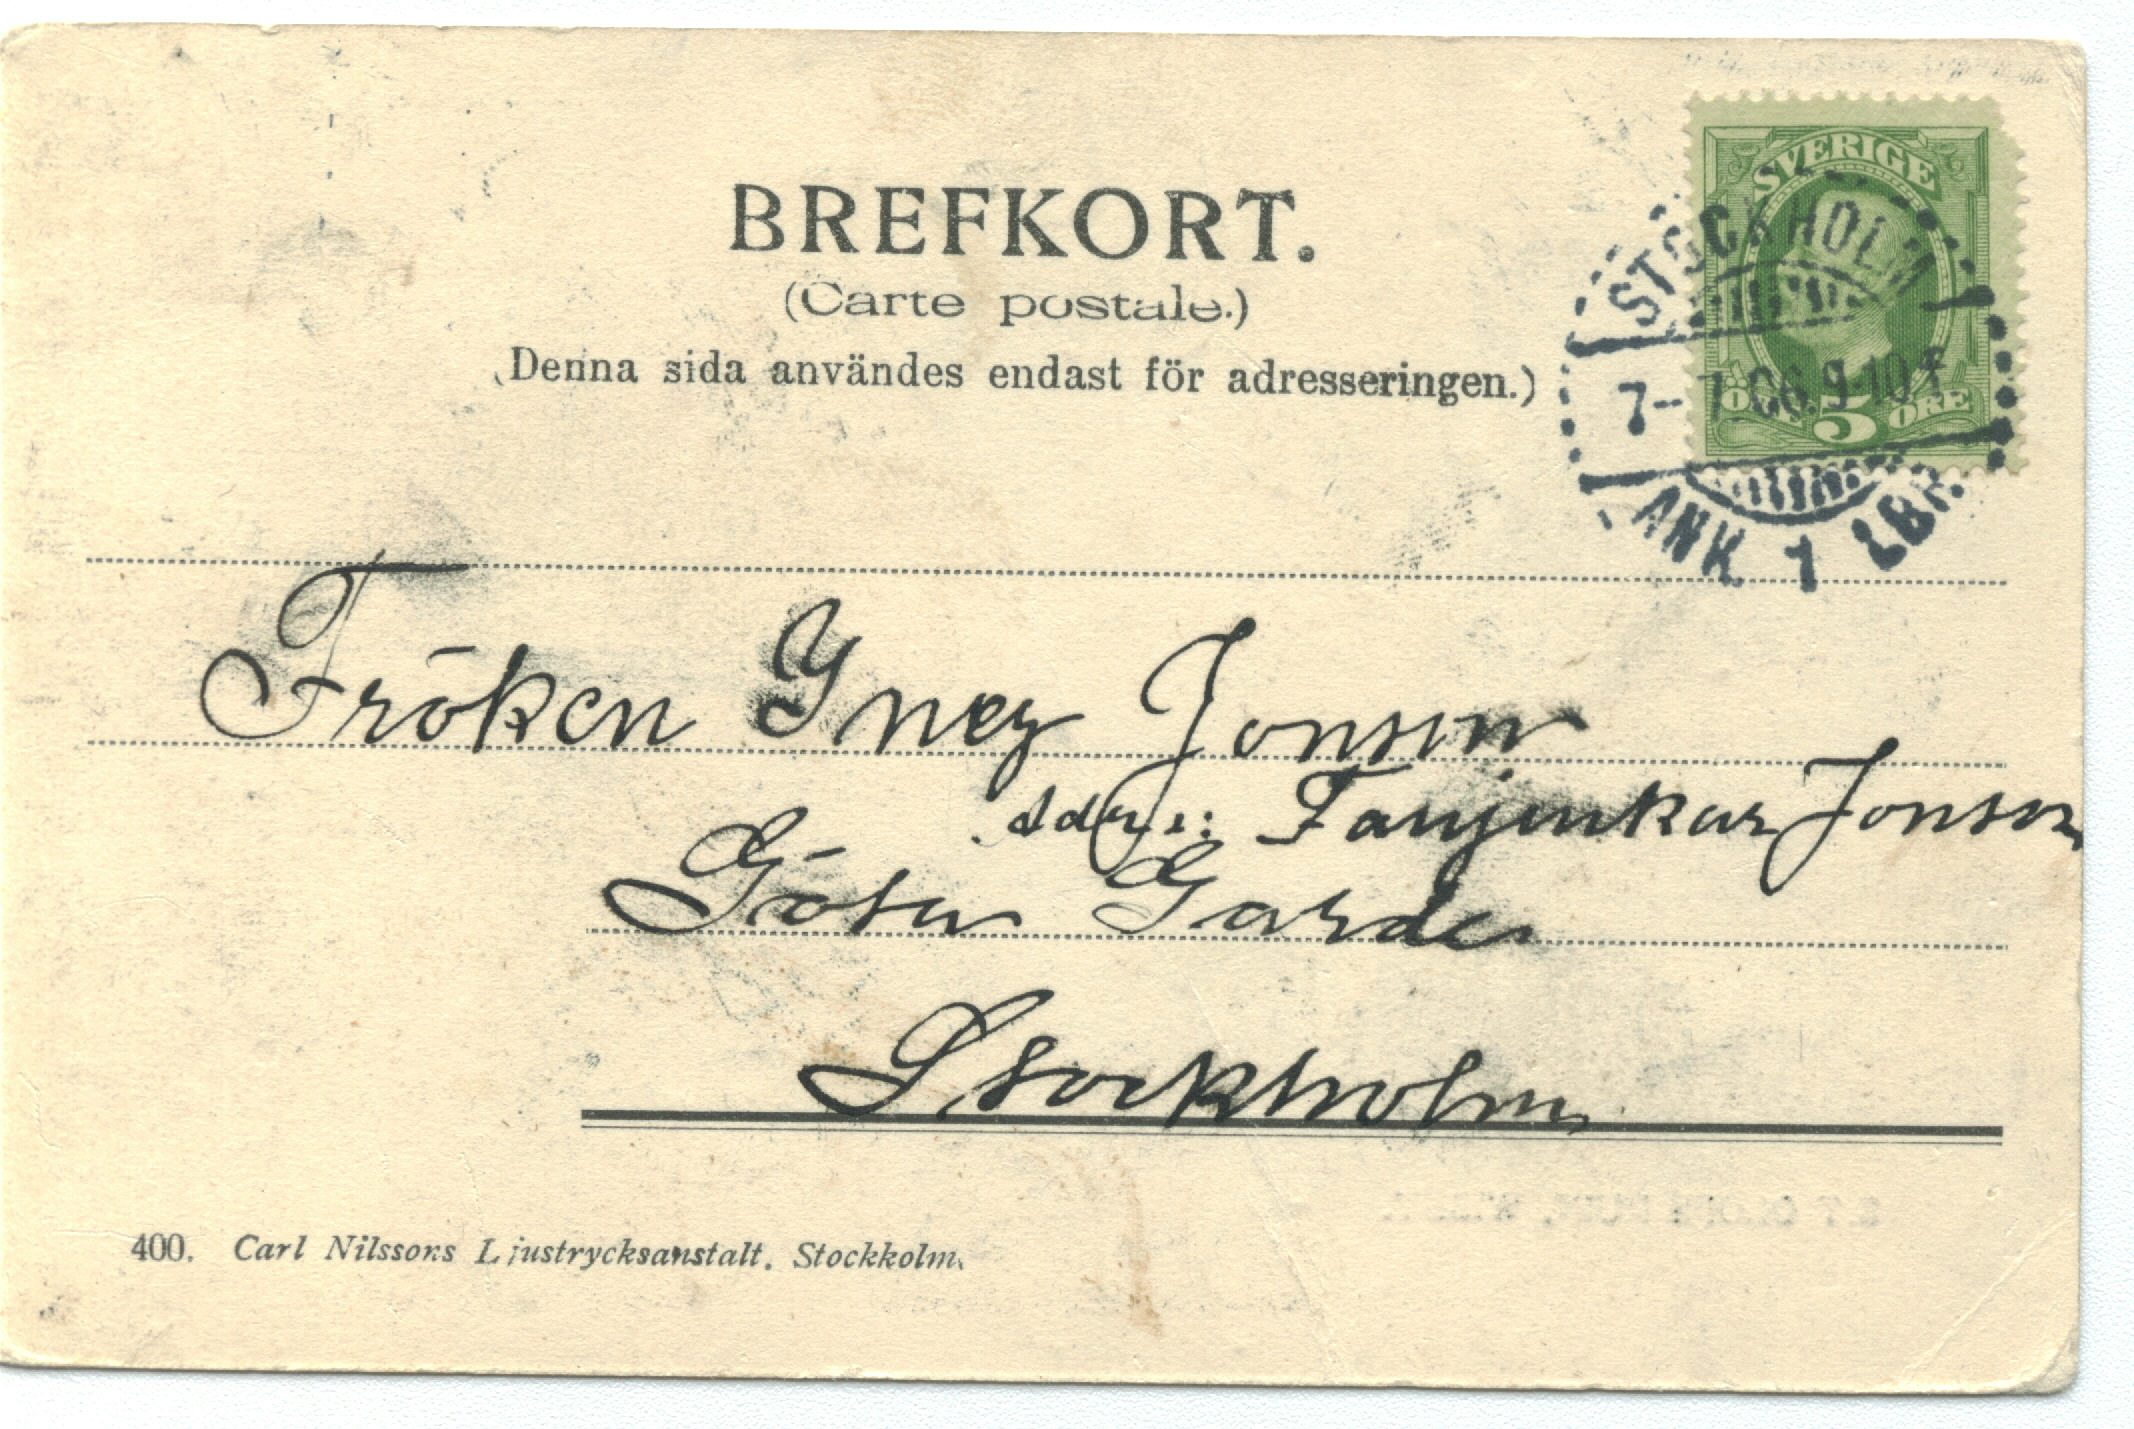 BREFKORT.
(Carte postale.)
(Denna sida användes endast för adresseringen.)
SVERIGE
5 ÖRE
STOCKHOLM
7-7.06.9-10F
ANK 1 LBR.
Fröken Ynez Jonson
Adr.: Fanjunkar Jonson
Göta Garde
Stockholm
400. Carl Nilssons Ljustrycksanstalt. Stockkolm.